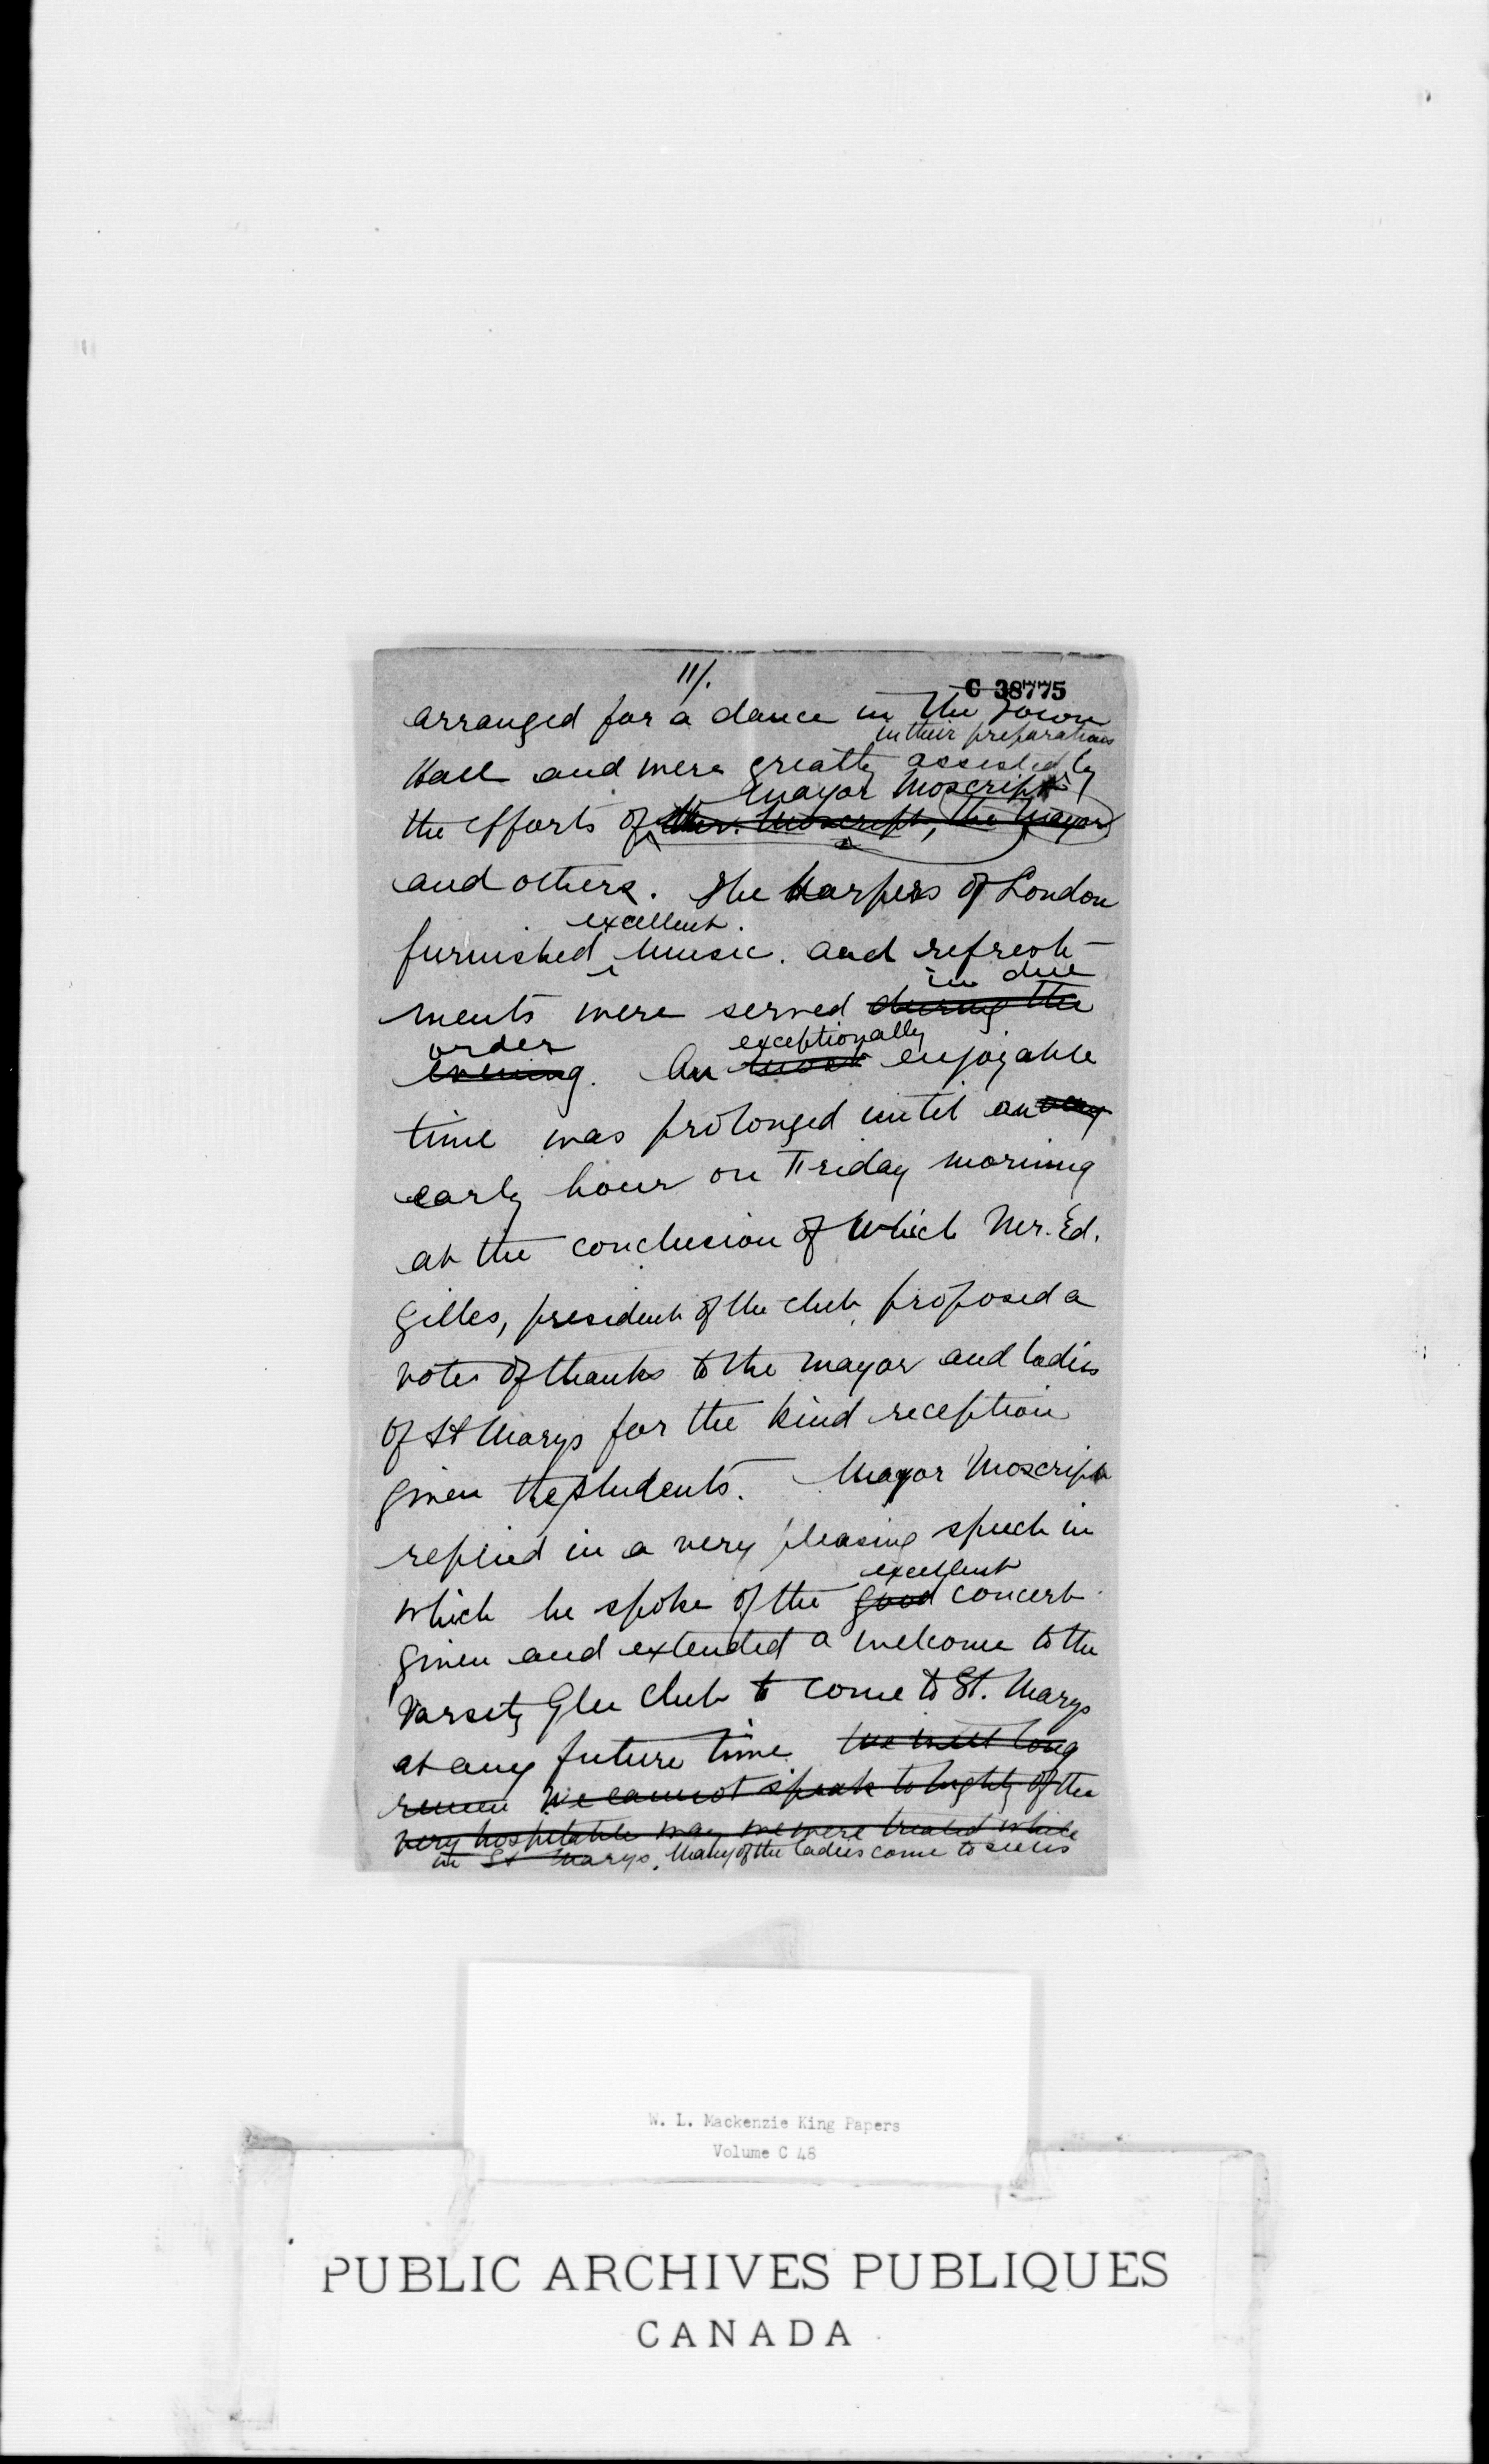 11/.
C 38775
arranged for a dance in the Town
in their preparations
Hall and were greatly assisted by
Mayor Moscrip
the efforts of Mr. Moscrip, the Mayor
and others. The Harpers of London
excellent
furnished music. and refresh-
in due
ments were served during the
order
exceptionally
evening. An most enjoyable
time was prolonged until an very
early hour on Friday morning
at the conclusion of which Mr. Ed.
Gilles, president of the club, proposed a
vote of thanks to the mayor and ladies
of St Marys for the kind reception
given the students. Mayor Moscrip
replied in a very pleasing speech in
excellent
which he spoke of the good concert
given and extended a welcome to the
Varsity Glee Club to come to St. Marys
at any future time. We will long
remem We cannot speak to highly of the
very hospitable way we were treated while
in St Marys. Many of the ladies come to see us
W. L. Mackenzie King Papers
Volume C 48
PUBLIC ARCHIVES PUBLIQUES
CANADA